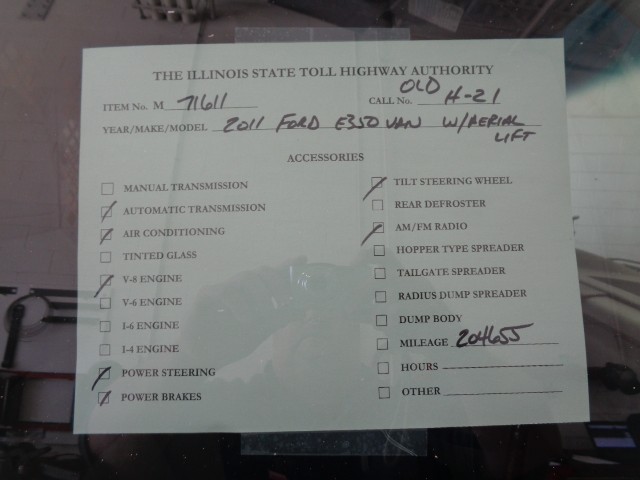 THE ILLINOIS STATE TOLL HIGHWAY AUTHORITY
ITEM No. M 71611
OLD
CALL No. H-21
YEAR/MAKE/MODEL 2011 FORD E350 VAN W/AERIAL
LIFT
ACCESSORIES
MANUAL TRANSMISSION
AUTOMATIC TRANSMISSION
AIR CONDITIONING
TINTED GLASS
V-8 ENGINE
V-6 ENGINE
I-6 ENGINE
I-4 ENGINE
POWER STEERING
POWER BRAKES
TILT STEERING WHEEL
REAR DEFROSTER
AM/FM RADIO
HOPPER TYPE SPREADER
TAILGATE SPREADER
RADIUS DUMP SPREADER
DUMP BODY
MILEAGE 204655
HOURS
OTHER